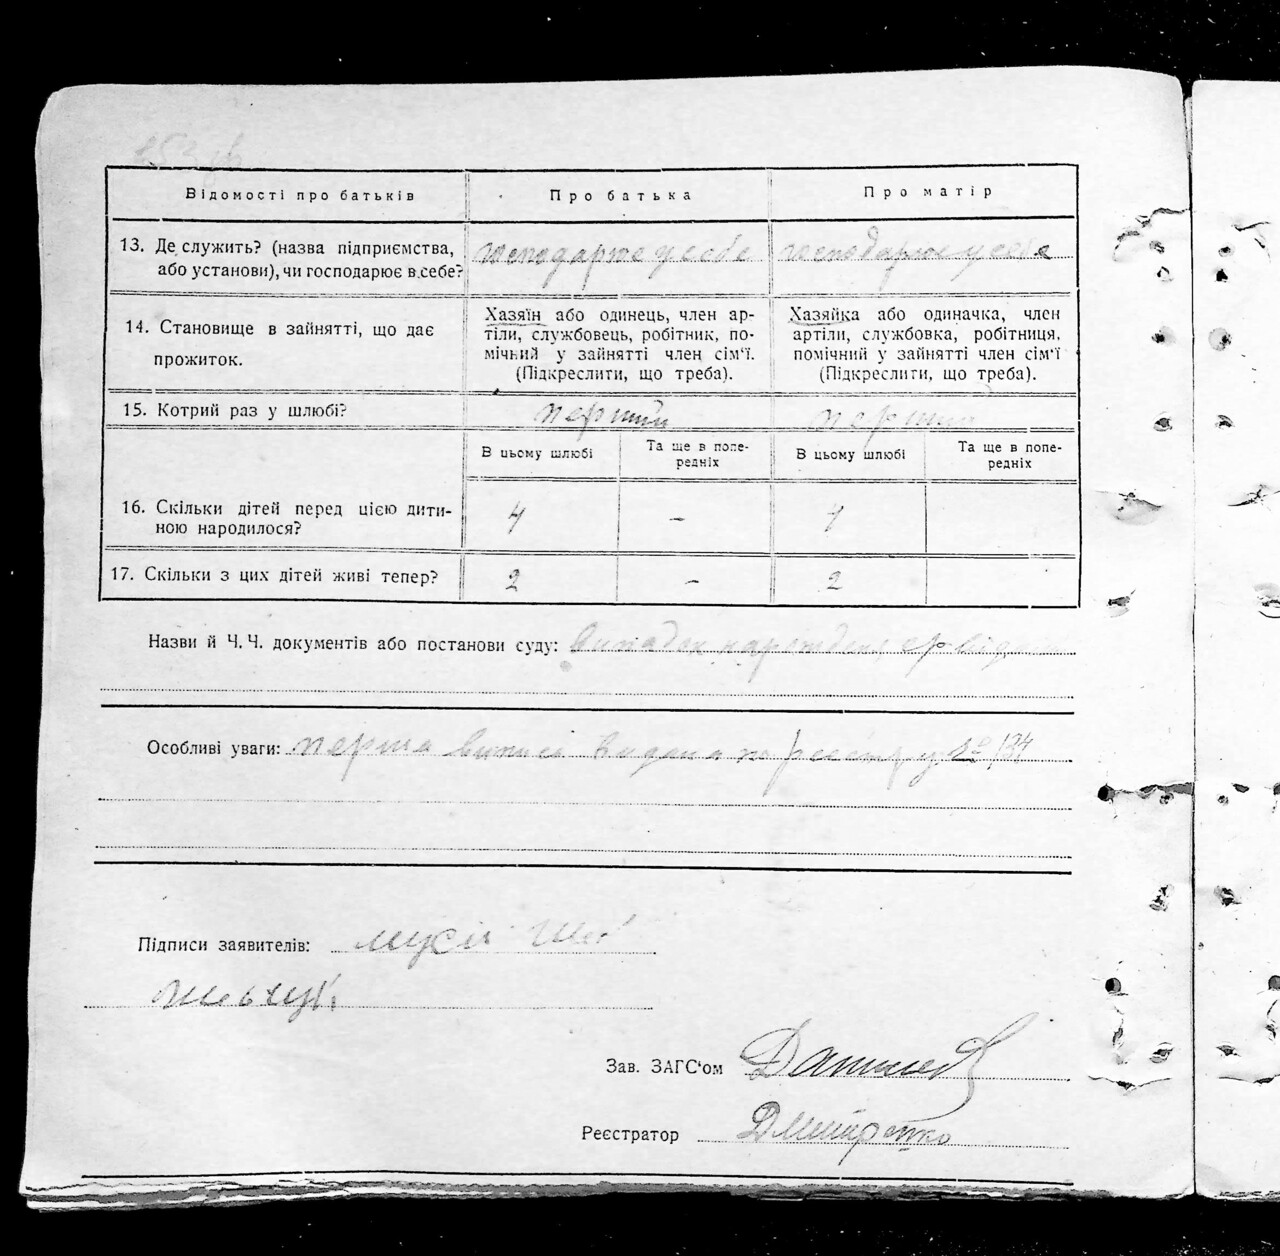 Відомості про батьків
Про батька
Про матір
13. Де служить? (назва підприємства,
або установи), чи господарює в себе?
господарює у себе
господарює у себе
14. Становище в зайнятті, що дає
прожиток.
Хазяїн або одинець, член ар-
тіли, службовець, робітник, по-
мічний у зайнятті член сім'ї.
(Підкреслити, що треба).
Хазяйка або одиначка, член
артіли, службовка, робітниця,
помічний у зайнятті член сім'ї
(Підкреслити, що треба).
15. Котрий раз у шлюбі?
перший
перший
В цьому шлюбі
Та ще в попе-
редніх
В цьому шлюбі
Та ще в попе-
редніх
16. Скільки дітей перед цією дити-
ною народилося?
4
–
4
17. Скільки з цих дітей живі тепер?
2
–
2
Назви й Ч. Ч. документів або постанови суду:
Особливі уваги: перша випись видана по реєстру № 134
Підписи заявителів: Мусій
Шевчук
Зав. ЗАГС'ом
Реєстратор Дмитренко